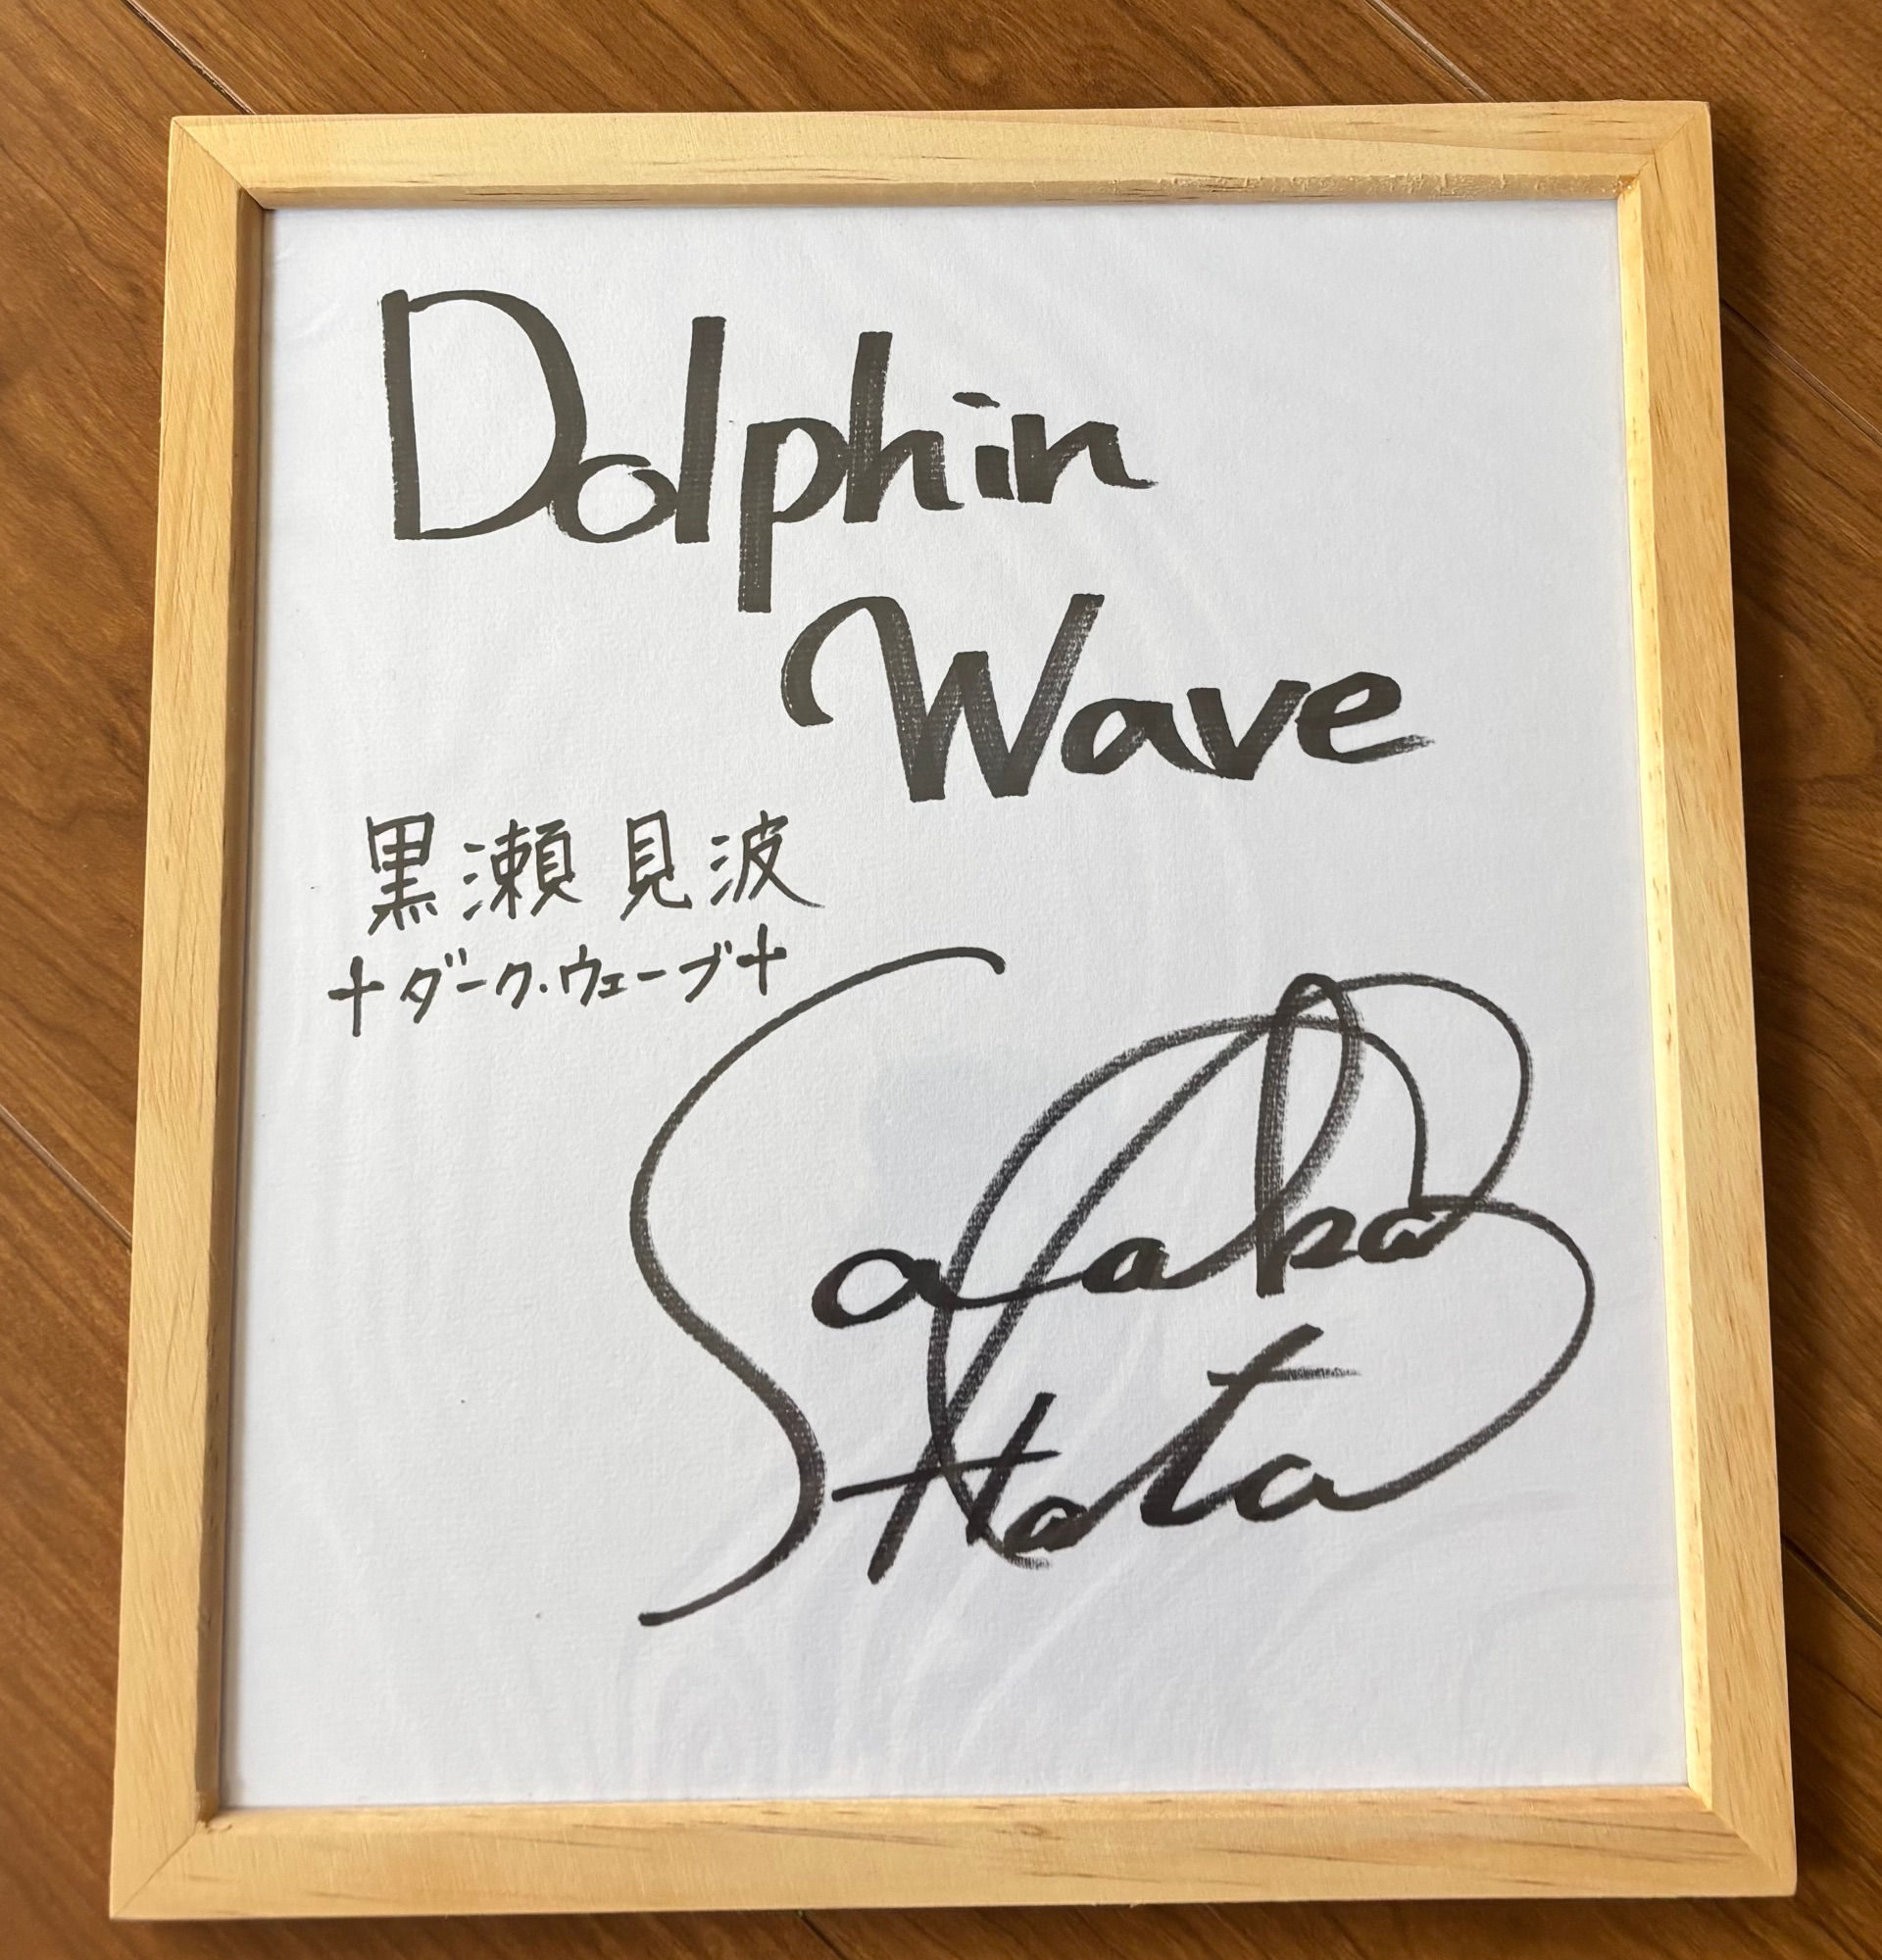 Dolphin
Wave
黒瀬 見波
†ダーク・ウェーブ†
Sayaka
Hata